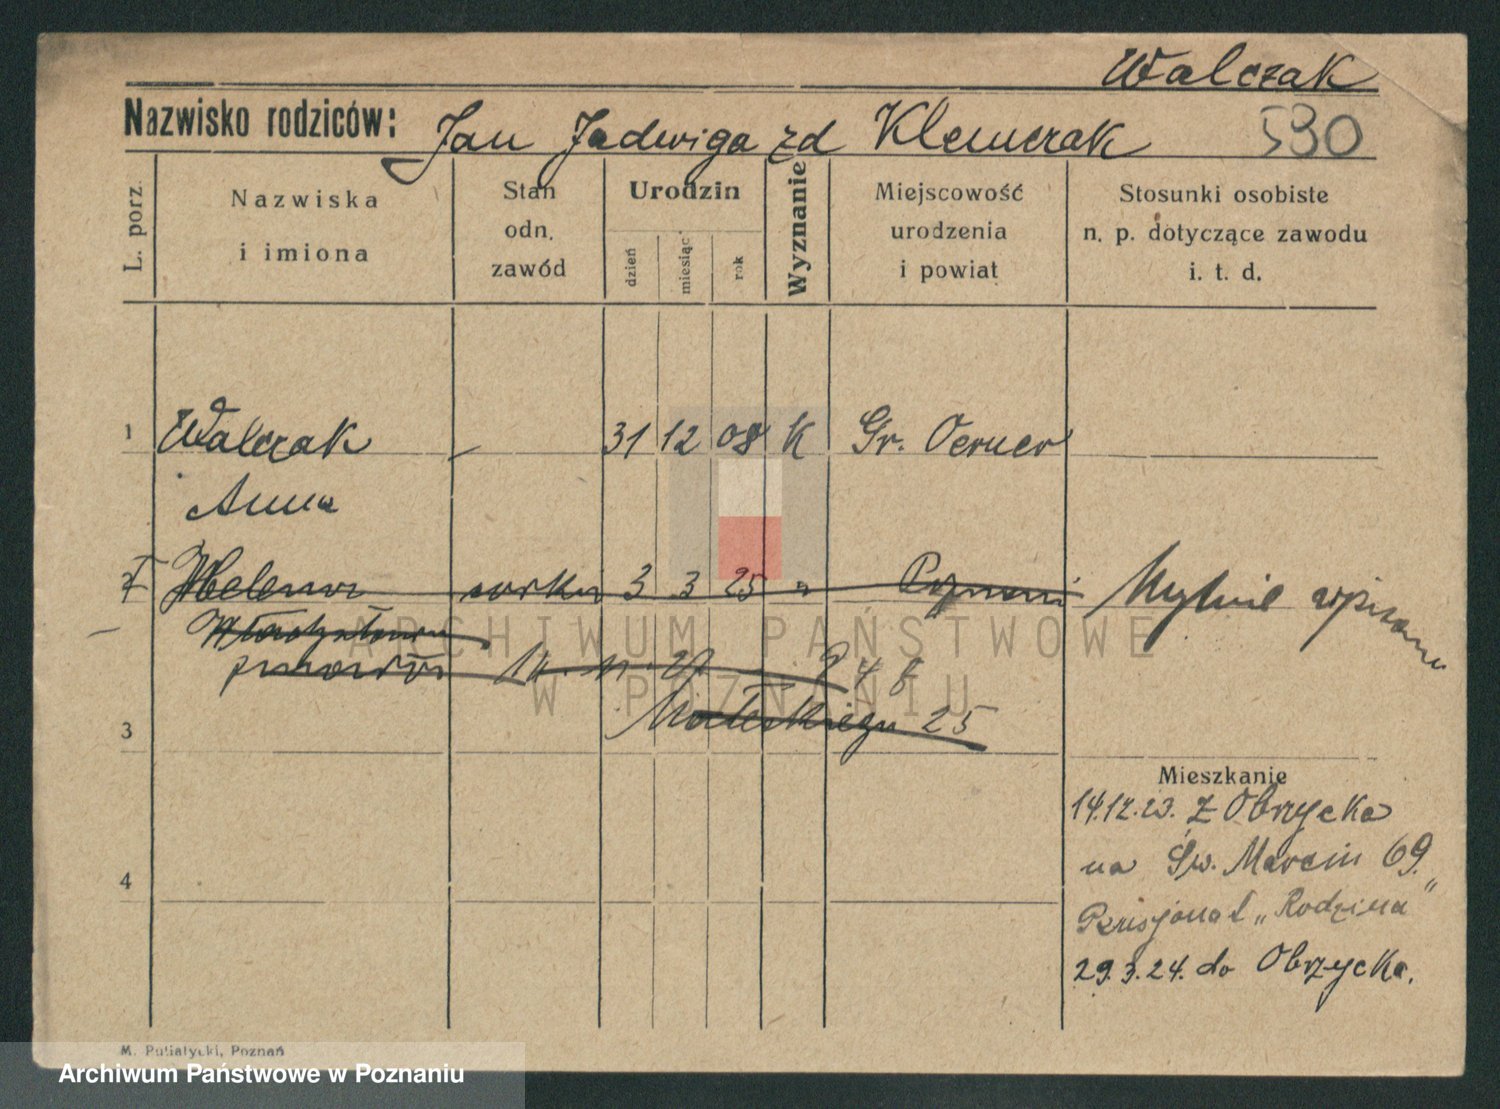 Walczak
Nazwisko rodziców: Jan Jadwiga zd Klemczak 590
L. porz.
Nazwiska
i imiona
Stan
odn.
zawód
Urodzin
dzień
miesiąc
rok
Wyznanie
Miejscowość
urodzenia
i powiat
Stosunki osobiste
n. p. dotyczące zawodu
i. t. d.
1 Walczak - 31 12 08 K Gr. Oerner
Anna
2 Helena córka 3 3 25 " Poznań Mylnie wpisano
Władysława
14. 11. 27
25
3
Mieszkanie
14.12.23. z Obrzycka
na Św. Marcin 69.
4
Pensjonat „Rodzina"
29.3.24. do Obrzycka.
M. Putiatycki, Poznań
ARCHIWUM PAŃSTWOWE
W POZNANIU
Archiwum Państwowe w Poznaniu